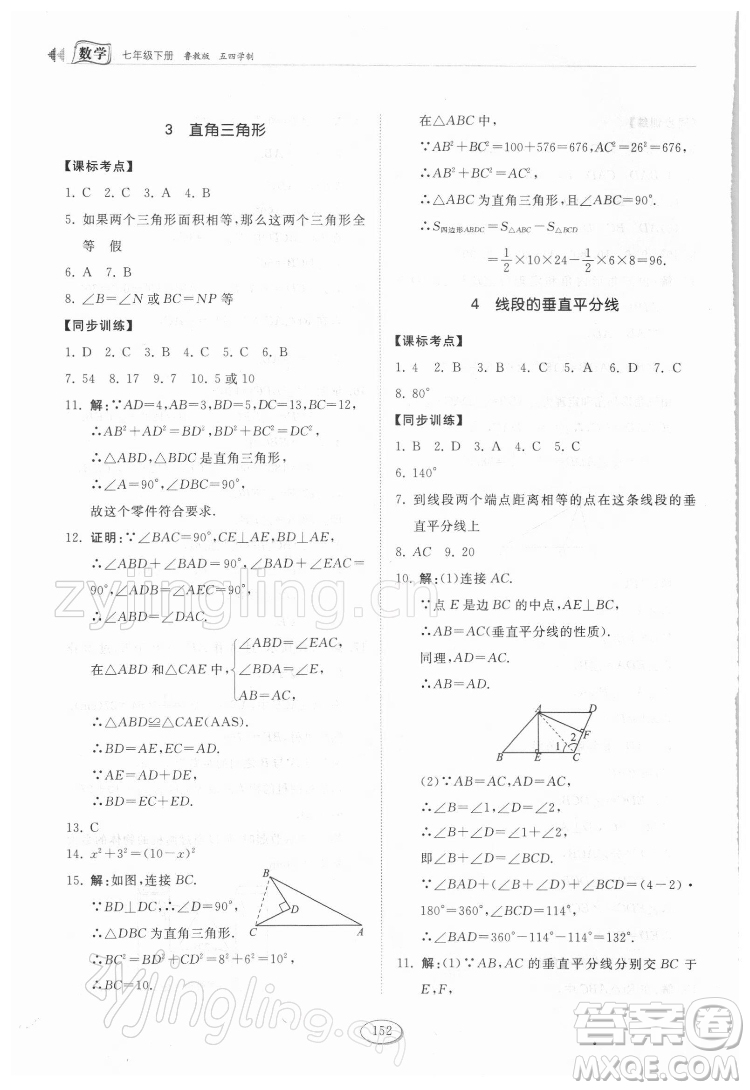 数学 七年级下册 鲁教版 五四学制
3 直角三角形
【课标考点】
1. C 2. C 3. A 4. B
5. 如果两个三角形面积相等,那么这两个三角形全
等 假
6. A 7. B
8. ∠B=∠N或BC=NP等
【同步训练】
1. D 2. C 3. D 4. C 5. B 6. C
7. 54 8. 17 9. 7 10. 5或10
11. 解:∵AD=4,AB=3,BD=5,DC=13,BC=12,
∴AB²+AD²=BD²,BD²+BC²=DC²,
∴△ABD,△BDC是直角三角形,
∴∠A=90°,∠DBC=90°,
故这个零件符合要求.
12. 证明:∵∠BAC=90°,CE⊥AE,BD⊥AE,
∴∠ABD+∠BAD=90°,∠BAD+∠DAC=
90°,∠ADB=∠AEC=90°,
∴∠ABD=∠DAC.
在△ABD和△CAE中,
∠ABD=∠EAC,
∠BDA=∠E,
AB=AC,
∴△ABD≌△CAE(AAS).
∴BD=AE,EC=AD.
∵AE=AD+DE,
∴BD=EC+ED.
13. C
14. x²+3²=(10-x)²
15. 解:如图,连接BC.
∵BD⊥DC,∴∠D=90°,
∴△DBC为直角三角形.
∴BC²=BD²+CD²=6²+8²=10².
∴BC=10.
B
D
C
A
在△ABC中,
∵AB²+BC²=100+576=676,AC²=26²=676,
∴AB²+BC²=AC².
∴△ABC为直角三角形,且∠ABC=90°.
∴S四边形ABDC=S△ABC-S△BCD
=1/2×10×24-1/2×6×8=96.
4 线段的垂直平分线
【课标考点】
1. 4 2. B 3. B 4. B 5. A 6. D 7. C
8. 80°
【同步训练】
1. B 2. D 3. A 4. C 5. C
6. 140°
7. 到线段两个端点距离相等的点在这条线段的垂
直平分线上
8. AC 9. 20
10. 解:(1)连接AC.
∵点E是边BC的中点,AE⊥BC,
∴AB=AC(垂直平分线的性质).
同理,AD=AC,
∴AB=AD.
A D
F
2
1
B E C
(2)∵AB=AC,AD=AC,
∴∠B=∠1,∠D=∠2,
∴∠B+∠D=∠1+∠2,
即∠B+∠D=∠BCD.
∵∠BAD+(∠B+∠D)+∠BCD=(4-2)·
180°=360°,∠BAD=114°,
∴∠BCD=360°-114°-114°=132°.
11. 解:(1)∵AB,AC的垂直平分线分别交BC于
E,F,
152
zyjingling.cn
zyjingling
答案圈
MXQE.COM